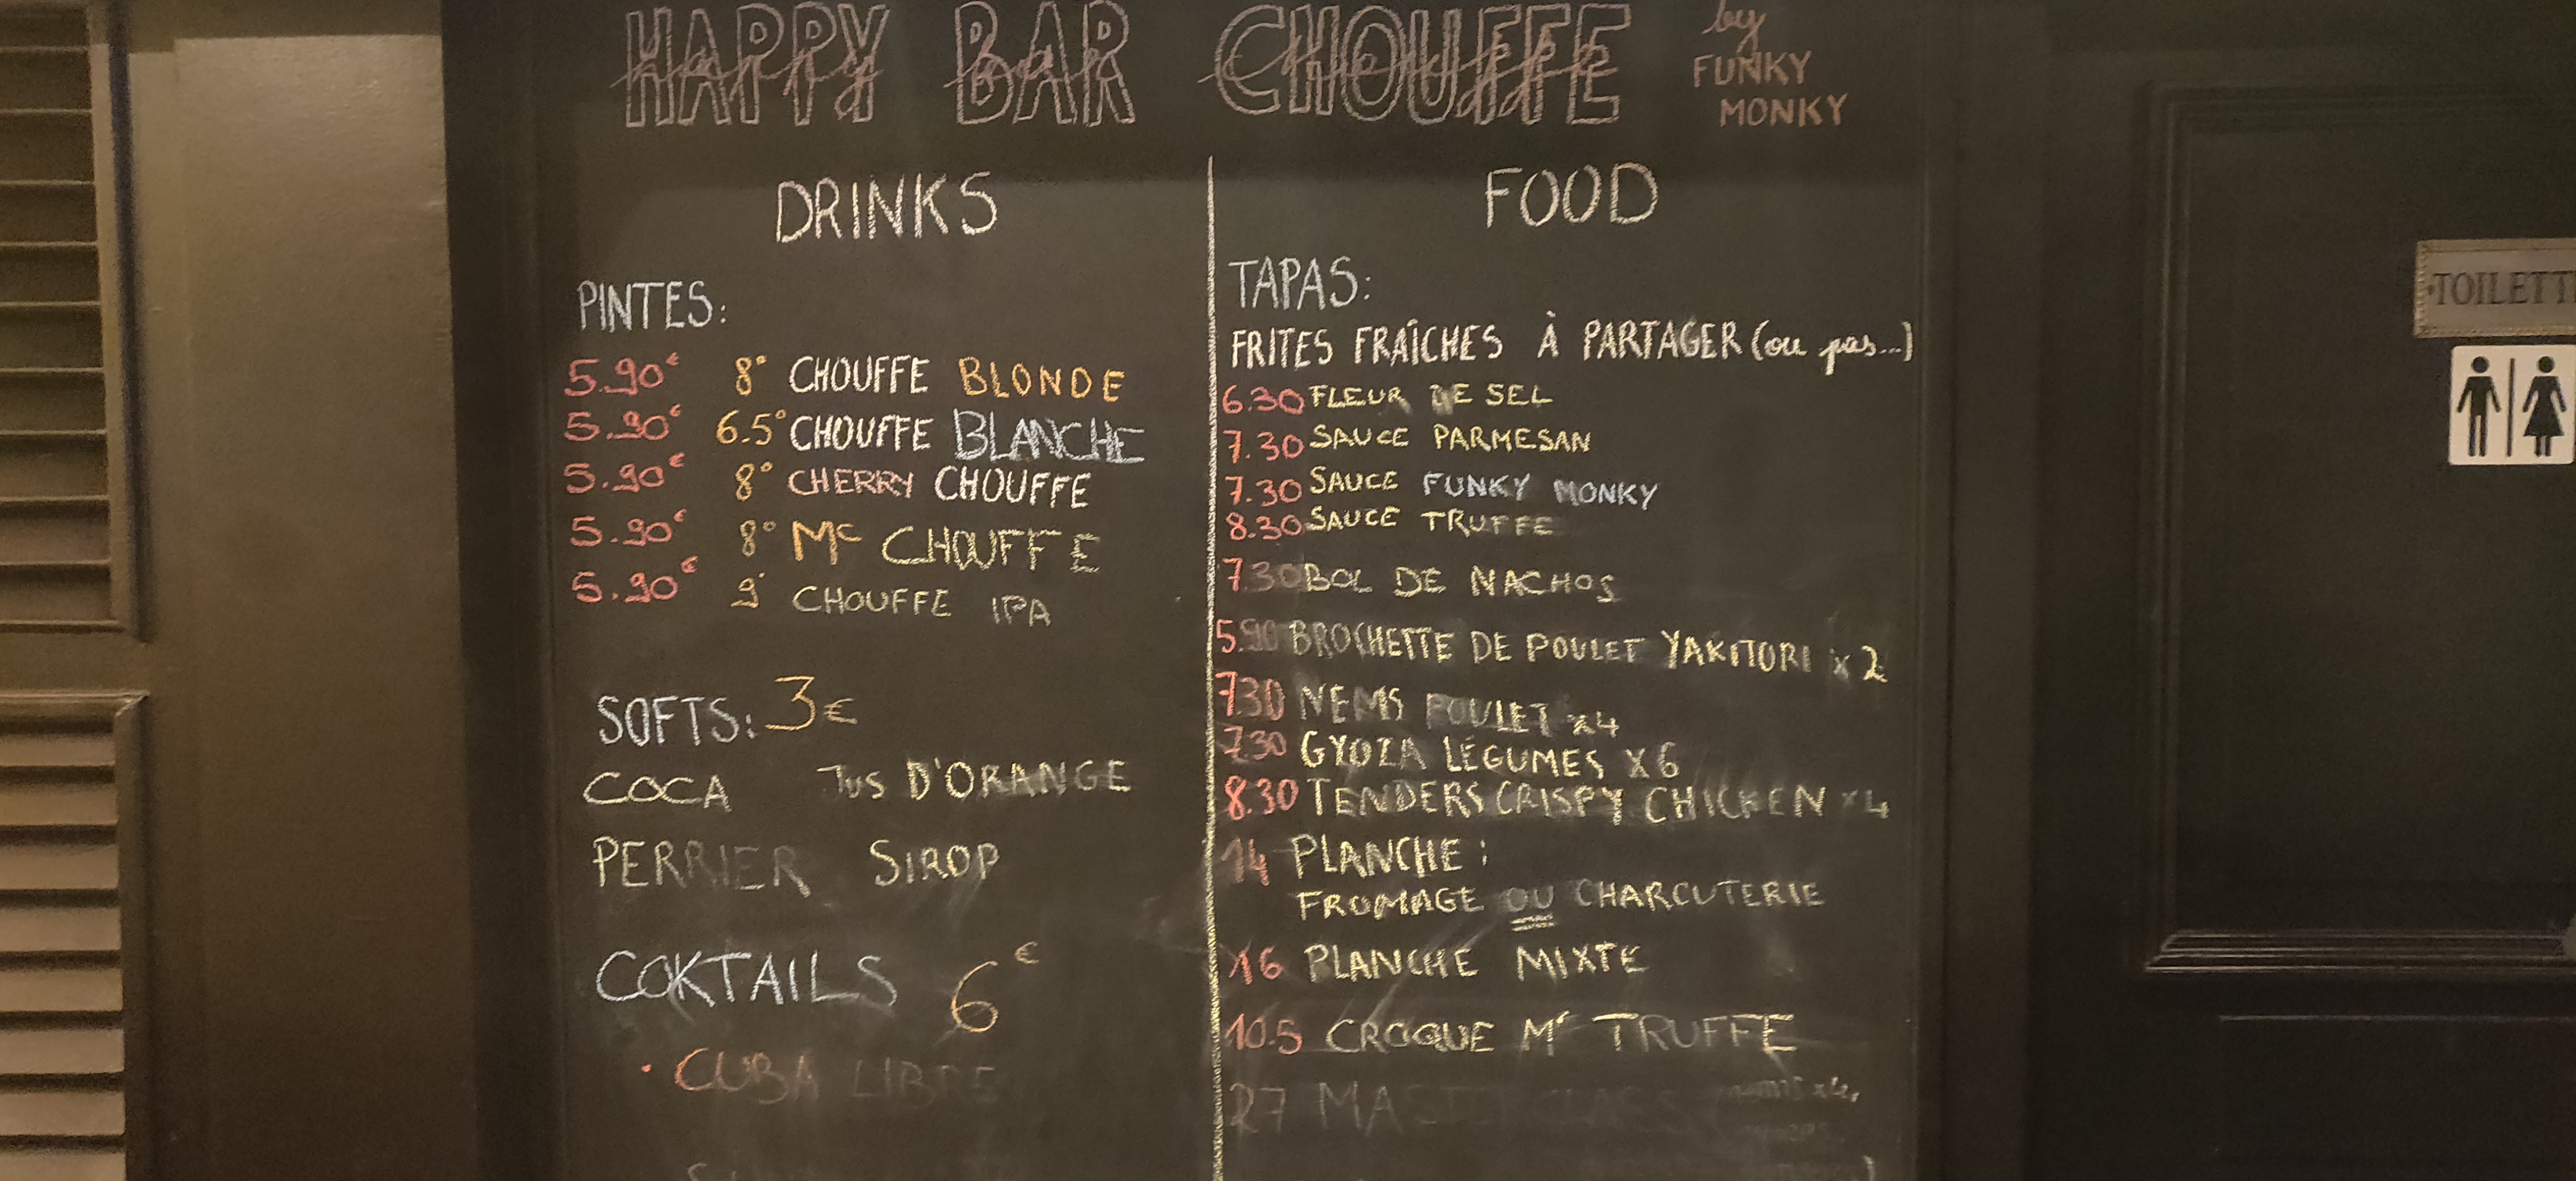 HAPPY BAR CHOUFFE
by
FUNKY
MONKY
DRINKS
PINTES:
5.90€ 8° CHOUFFE BLONDE
5.90€ 6.5° CHOUFFE BLANCHE
5.90€ 8° CHERRY CHOUFFE
5.90€ 8° Mc CHOUFFE
5.90€ 9° CHOUFFE IPA
SOFTS: 3€
COCA JUS D'ORANGE
PERRIER SIROP
COKTAILS 6€
• CUBA LIBRE
FOOD
TAPAS:
FRITES FRAÎCHES À PARTAGER (ou pas...)
6.30 FLEUR DE SEL
7.30 SAUCE PARMESAN
7.30 SAUCE FUNKY MONKY
8.30 SAUCE TRUFFE
7.30 BOL DE NACHOS
5.90 BROCHETTE DE POULET YAKITORI x2
7.30 NEMS POULET x4
7.30 GYOZA LÉGUMES X6
8.30 TENDERS CRISPY CHICKEN x4
14 PLANCHE:
FROMAGE OU CHARCUTERIE
16 PLANCHE MIXTE
10.5 CROQUE Mr TRUFFE
27
TOILETT